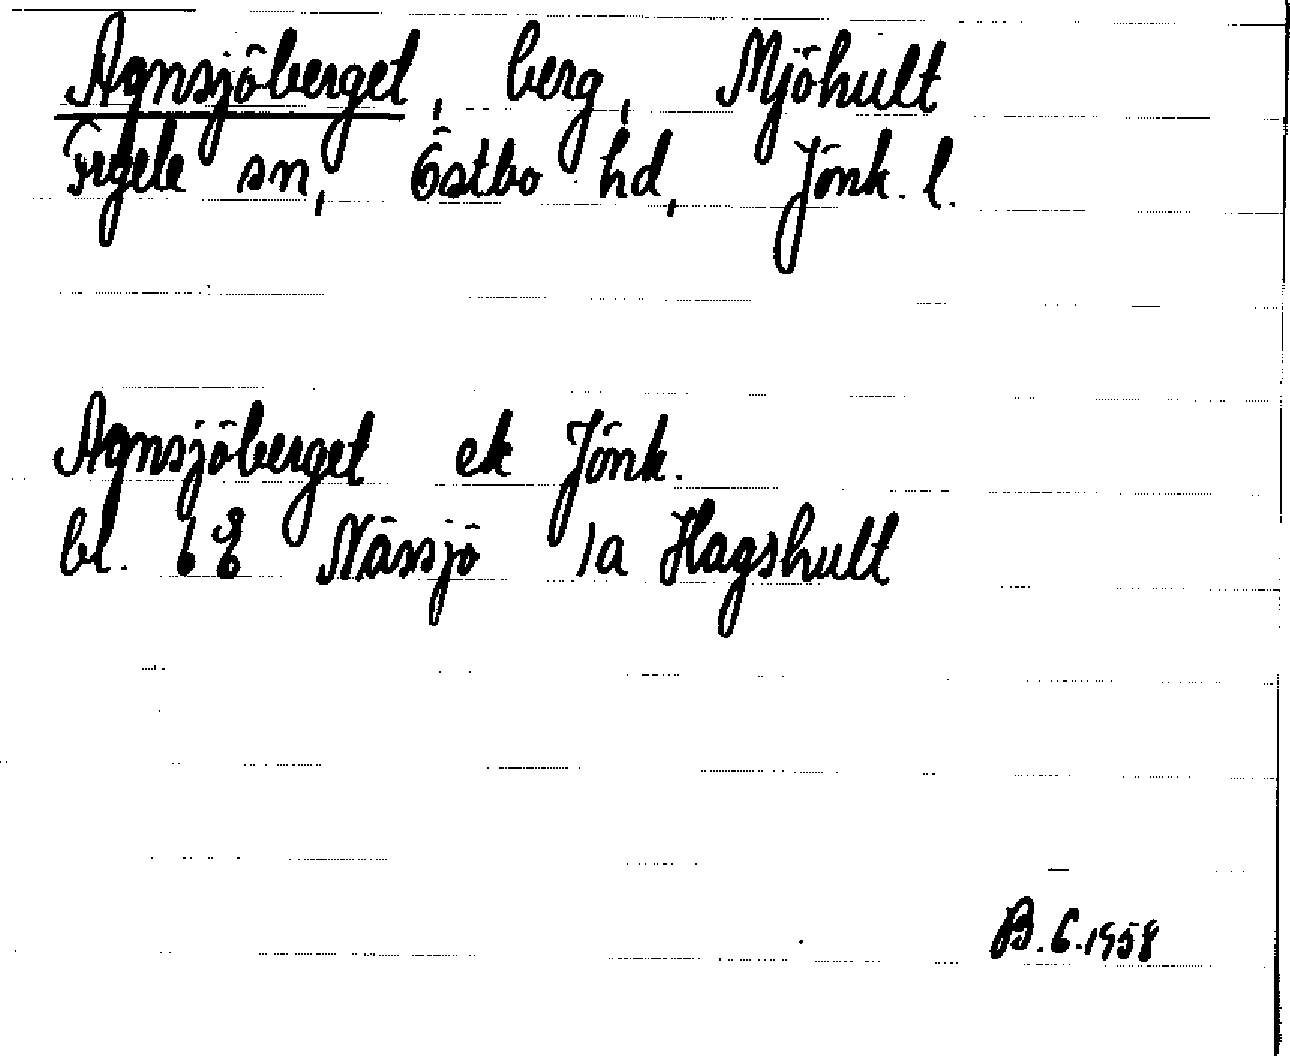 Agnsjöberget, berg, Mjöhult
Fryele sn, Östbo hd, Jönk. l.
Agnsjöberget ek Jönk.
bl. 6E Nässjö 1a Hagshult
B.G.1958